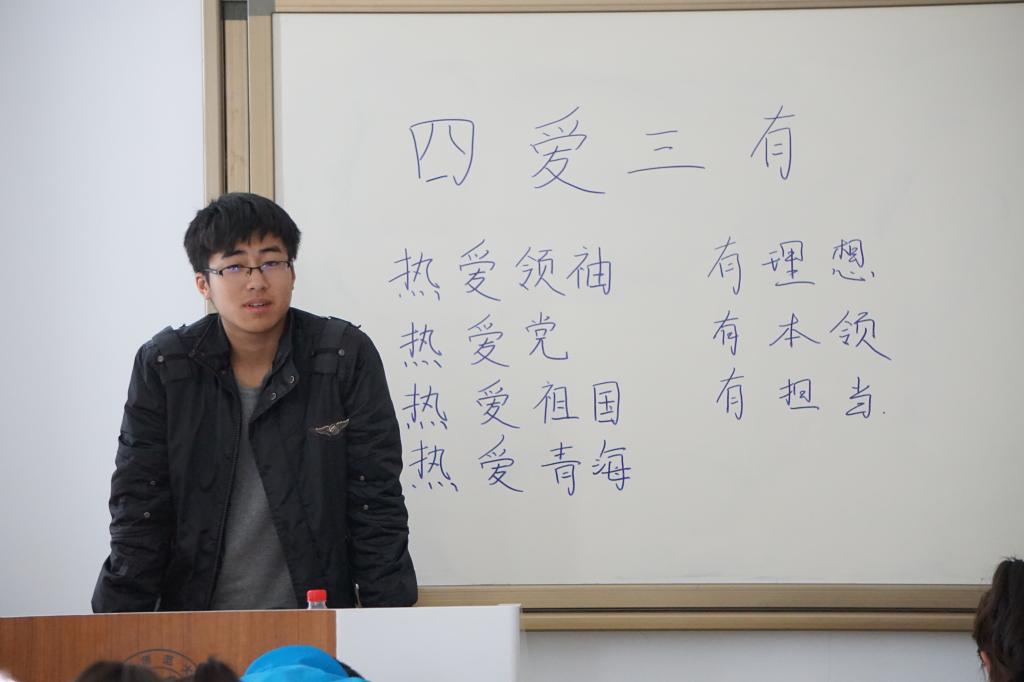 四爱三有
热爱领袖
热爱党
热爱祖国
热爱青海
有理想
有本领
有担当.